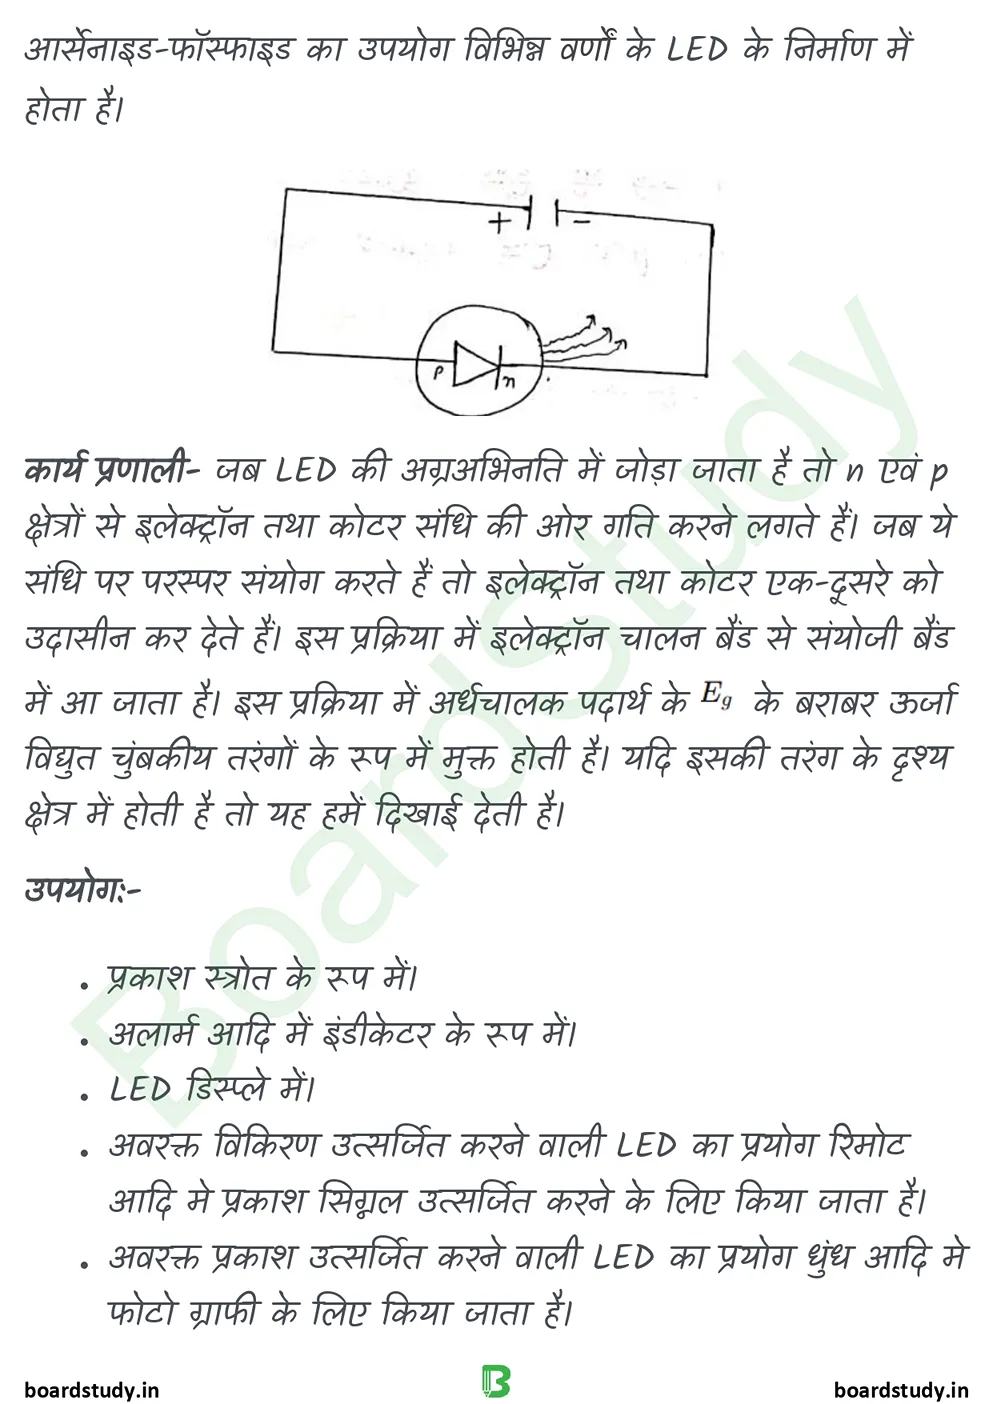 आर्सेनाइड-फॉस्फाइड का उपयोग विभिन्न वर्णों के LED के निर्माण में
होता है।
+ -
p n
कार्य प्रणाली- जब LED की अग्रअभिनति में जोड़ा जाता है तो n एवं p
क्षेत्रों से इलेक्ट्रॉन तथा कोटर संधि की ओर गति करने लगते हैं। जब ये
संधि पर परस्पर संयोग करते हैं तो इलेक्ट्रॉन तथा कोटर एक-दूसरे को
उदासीन कर देते हैं। इस प्रक्रिया में इलेक्ट्रॉन चालन बैंड से संयोजी बैंड
में आ जाता है। इस प्रक्रिया में अर्धचालक पदार्थ के Eg के बराबर ऊर्जा
विद्युत चुंबकीय तरंगों के रूप में मुक्त होती है। यदि इसकी तरंग के दृश्य
क्षेत्र में होती है तो यह हमें दिखाई देती है।
उपयोग:-
• प्रकाश स्त्रोत के रूप में।
• अलार्म आदि में इंडीकेटर के रूप में।
• LED डिस्प्ले में।
• अवरक्त विकिरण उत्सर्जित करने वाली LED का प्रयोग रिमोट
आदि मे प्रकाश सिग्नल उत्सर्जित करने के लिए किया जाता है।
• अवरक्त प्रकाश उत्सर्जित करने वाली LED का प्रयोग धुंध आदि मे
फोटो ग्राफी के लिए किया जाता है।
BoardStudy
boardstudy.in boardstudy.in